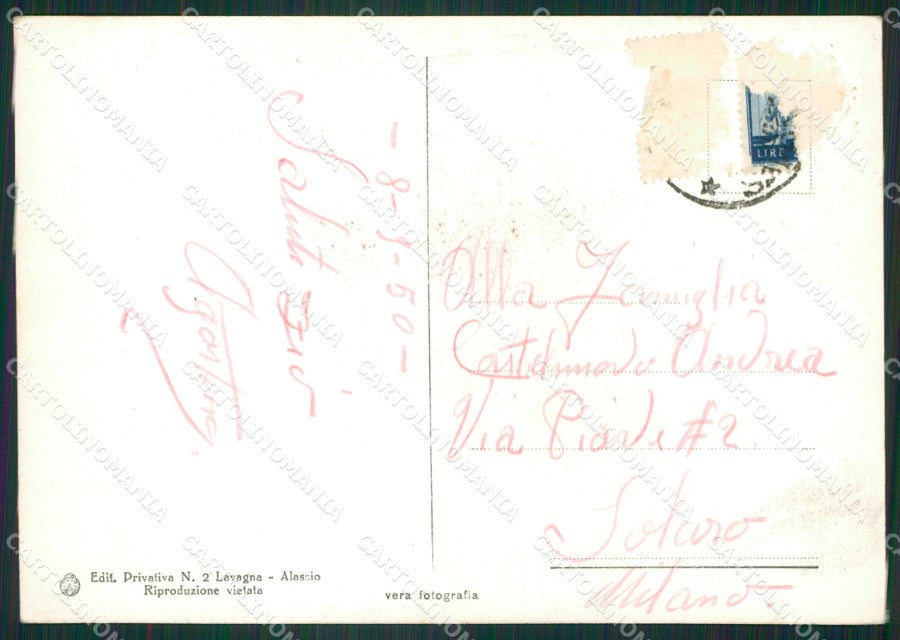 - 8-8-50 -
Saluti Zio
Agostino
LIRE
Alla Famiglia
Castelnuovo Andrea
Via Piave # 2
Solaro
Milano.
Edit. Privativa N. 2 Lavagna - Alassio
Riproduzione vietata
vera fotografia
CARTOLINOMANIA